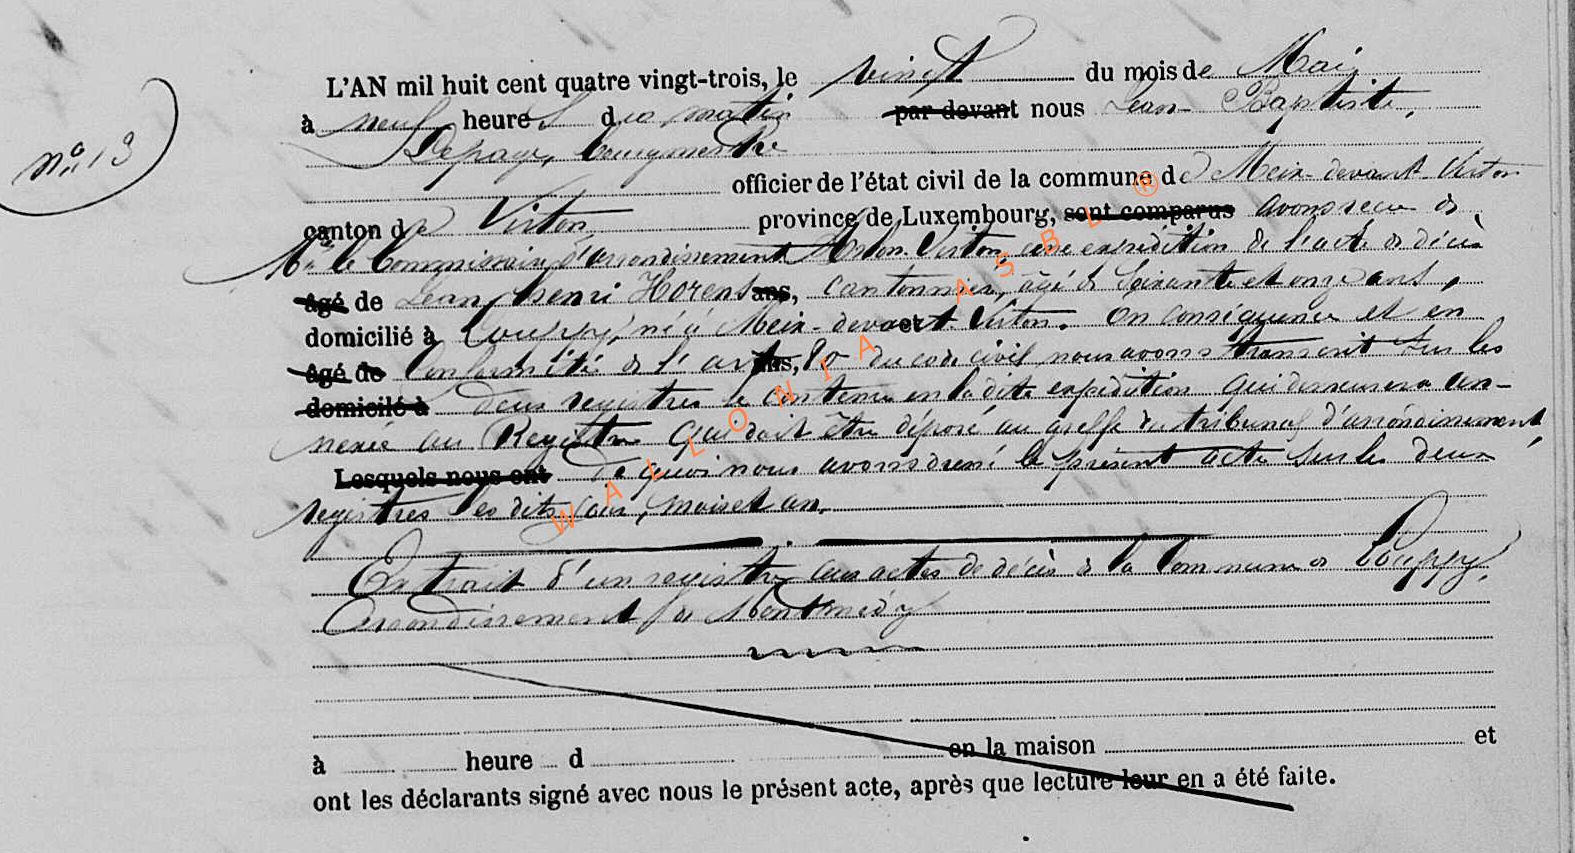 L'AN mil huit cent quatre vingt-trois, le vingt du mois de Mai
à neuf heures du matin par devant nous Jean Baptiste
n° 13
Lepage, bourgmestre
officier de l'état civil de la commune de Meix-devant-Virton
canton de Virton province de Luxembourg, sont comparus avons recu de
Mr le Commissaire d'arrondissement Arlon-Virton, une expédition de l'acte de décès
âgé de Jean Henri Horens ans, cantonnier, âgé de soixante et onze ans,
domicilié à Louppy, né à Meix-devant-Virton. En conséquence et en
âgé de conformité de l'art ans, 80 du code civil nous avons transcrit sur les
domicilé à deux registres le contenu en la dite expédition qui demeurera an-
nexée au Registre qui doit être déposé au greffe du tribunal d'arrondissement
Lesquels nous ont De quoi nous avons dressé le présent acte sur les deux
registres les dits jour, mois et an.
Extrait d'un registre aux actes de décès de la Commune de Louppy,
Arrondissement de Montmédy
à heure d en la maison et
ont les déclarants signé avec nous le présent acte, après que lecture leur en a été faite.
WALLONIA ASBL ®